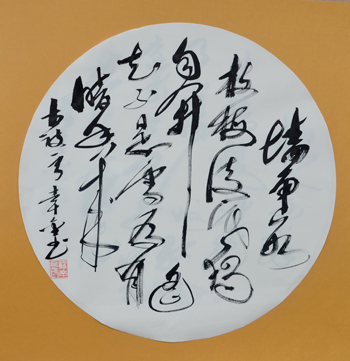 墙角数
枝梅凌寒独
自开遥
知不是雪为有
暗香来